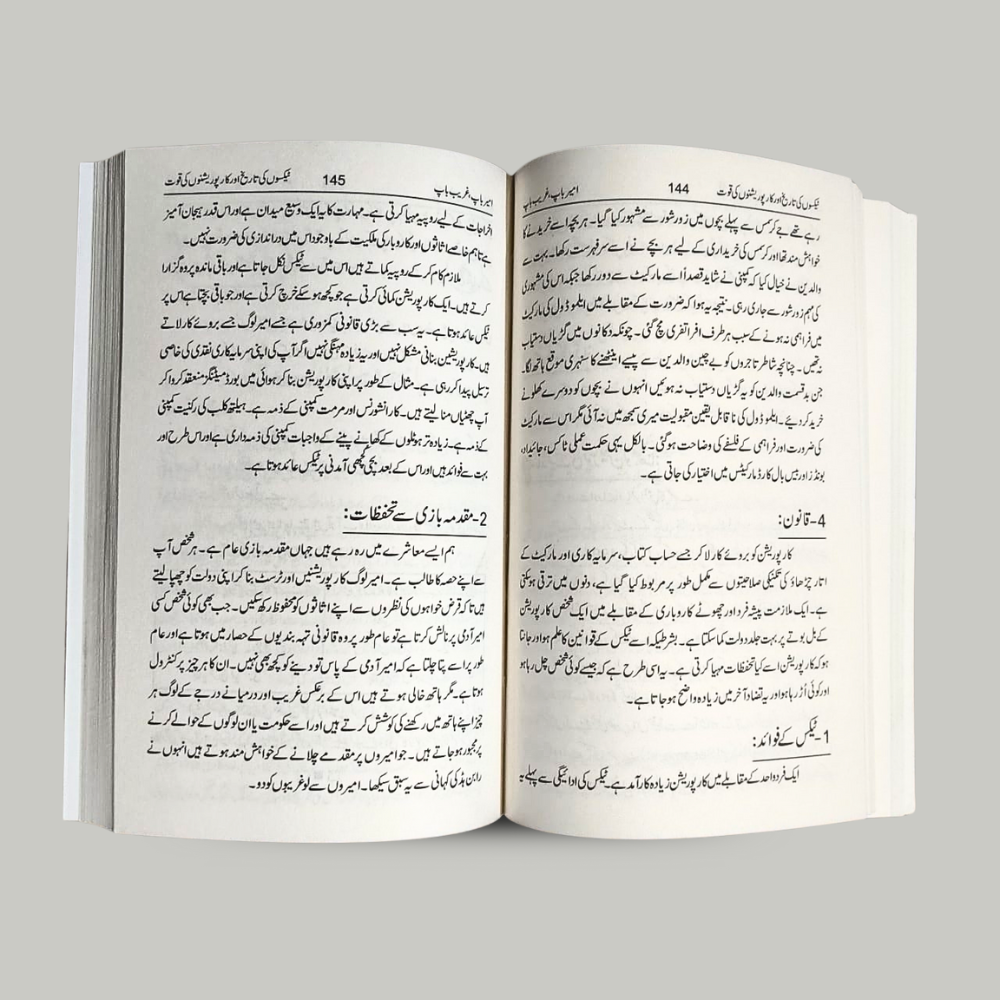 امیر باپ، غریب باپ 144 ٹیکسوں کی تاریخ اور کارپوریشنوں کی قوت
رہے تھے جے کرسمس سے پہلے بچوں میں زور شور سے مشہور کیا گیا۔ ہر بچہ اسے خریدنے کا
خواہش مند تھا اور کرسمس کی خریداری کے لیے ہر بچے نے اسے سرفہرست رکھا۔ بہت سے
والدین نے خیال کیا کہ کمپنی نے شاید قصداً اسے مارکیٹ سے دور رکھا جبکہ اس کی مشہوری
کی مہم زور شور سے جاری رہی۔ نتیجہ یہ ہوا کہ ضرورت کے مقابلے میں ایلمو ڈول کی مارکیٹ
میں فراہمی نہ ہونے کے سبب ہر طرف افراتفری مچ گئی۔ چونکہ دکانوں میں گڑیاں دستیاب
نہ تھیں۔ چنانچہ شاطر تاجروں کو بے چین والدین سے پیسے اینٹھنے کا سنہری موقع ہاتھ لگا۔
جن بدقسمت والدین کو یہ گڑیاں دستیاب نہ ہوئیں انہوں نے بچوں کو دوسرے کھلونے
خرید کر دیئے۔ ایلمو ڈول کی ناقابل یقین مقبولیت میری سمجھ میں نہ آئی مگر اس سے مارکیٹ
کی ضرورت اور فراہمی کے فلسفے کی وضاحت ہو گئی۔ بالکل یہی حکمت عملی سٹاکس، جائیداد،
بونڈز اور بیس بال کارڈ مارکیٹس میں اختیار کی جاتی ہے۔
4- قانون:
کارپوریشن کو بروئے کار لا کر جسے حساب کتاب، سرمایہ کاری اور مارکیٹ کے
اتار چڑھاؤ کی تکنیکی صلاحیتوں سے مکمل طور پر مربوط کیا گیا ہے، دنوں میں ترقی ہو سکتی
ہے۔ ایک ملازمت پیشہ فرد اور چھوٹے کاروباری کے مقابلے میں ایک شخص کارپوریشن
کے بل بوتے پر بہت جلد دولت کما سکتا ہے۔ بشرطیکہ اسے ٹیکس کے قوانین کا علم ہو اور جانتا
ہو کہ کارپوریشن اسے کیا تحفظات مہیا کرتی ہے۔ یہ اسی طرح ہے کہ جیسے کوئی شخص چل رہا ہو
اور کوئی اُڑ رہا ہو اور یہ تضاد آخر میں زیادہ واضح ہو جاتا ہے۔
1- ٹیکس کے فوائد:
ایک فرد واحد کے مقابلے میں کارپوریشن زیادہ کارآمد ہے۔ ٹیکس کی ادائیگی سے پہلے یہ
امیر باپ، غریب باپ 145 ٹیکسوں کی تاریخ اور کارپوریشنوں کی قوت
اخراجات کے لیے روپیہ مہیا کرتی ہے۔ مہارت کا یہ ایک وسیع میدان ہے اور اس قدر ہیجان آمیز
ہے تاہم خاصے اثاثوں اور کاروبار کی ملکیت کے باوجود اس میں دراندازی کی ضرورت نہیں۔
ملازم کام کر کے روپیہ کماتے ہیں اس میں سے ٹیکس نکل جاتا ہے اور باقی ماندہ پر وہ گزارا
کرتے ہیں۔ ایک کارپوریشن کمائی کرتی ہے جو کچھ ہو سکے خرچ کرتی ہے اور جو باقی بچتا ہے اس پر
ٹیکس عائد ہوتا ہے۔ یہ سب سے بڑی قانونی کمزوری ہے جسے امیر لوگ جسے بروئے کار لاتے
ہیں۔ کارپوریشین بنانی مشکل نہیں اور یہ زیادہ مہنگی نہیں اگر آپ کی اپنی سرمایہ کاری نقدی کی خاصی
ترسیل پیدا کر رہی ہے۔ مثال کے طور پر اپنی کارپوریشن بنا کر ہوائی میں بورڈ میٹنگز منعقد کروا کر
آپ چھٹیاں منا لیتے ہیں۔ کار انشورنس اور مرمت کمپنی کے ذمہ ہے۔ ہیلتھ کلب کی رکنیت کمپنی
کے ذمہ ہے۔ زیادہ تر ہوٹلوں کے کھانے پینے کے واجبات کمپنی کی ذمہ داری ہے اور اس طرح اور
بہت سے فوائد ہیں اور اس کے بعد بچی کھچی آمدنی پر ٹیکس عائد ہوتا ہے۔
2- مقدمہ بازی سے تحفظات:
ہم ایسے معاشرے میں رہ رہے ہیں جہاں مقدمہ بازی عام ہے۔ ہر شخص آپ
سے اپنے حصہ کا طالب ہے۔ امیر لوگ کارپوریشنیں اور ٹرسٹ بنا کر اپنی دولت کو چھپا لیتے
ہیں تاکہ قرض خواہوں کی نظروں سے اپنے اثاثوں کو محفوظ رکھ سکیں۔ جب بھی کوئی شخص کسی
امیر آدمی پر نالش کرتا ہے تو عام طور پر وہ قانونی تہہ بندیوں کے حصار میں ہوتا ہے اور عام
طور پر اسے پتا چلتا ہے کہ امیر آدمی کے پاس تو دینے کو کچھ بھی نہیں۔ ان کا ہر چیز پر کنٹرول
ہوتا ہے۔ مگر ہاتھ خالی ہوتے ہیں اس کے برعکس غریب اور درمیانے درجے کے لوگ ہر
چیز اپنے ہاتھ میں رکھنے کی کوشش کرتے ہیں اور اسے حکومت یا ان لوگوں کے حوالے کرنے
پر مجبور ہو جاتے ہیں۔ جو امیروں پر مقدمے چلانے کے خواہش مند ہوتے ہیں انہوں نے
رابن ہڈ کی کہانی سے یہ سبق سیکھا۔ امیروں سے لو غریبوں کو دو۔